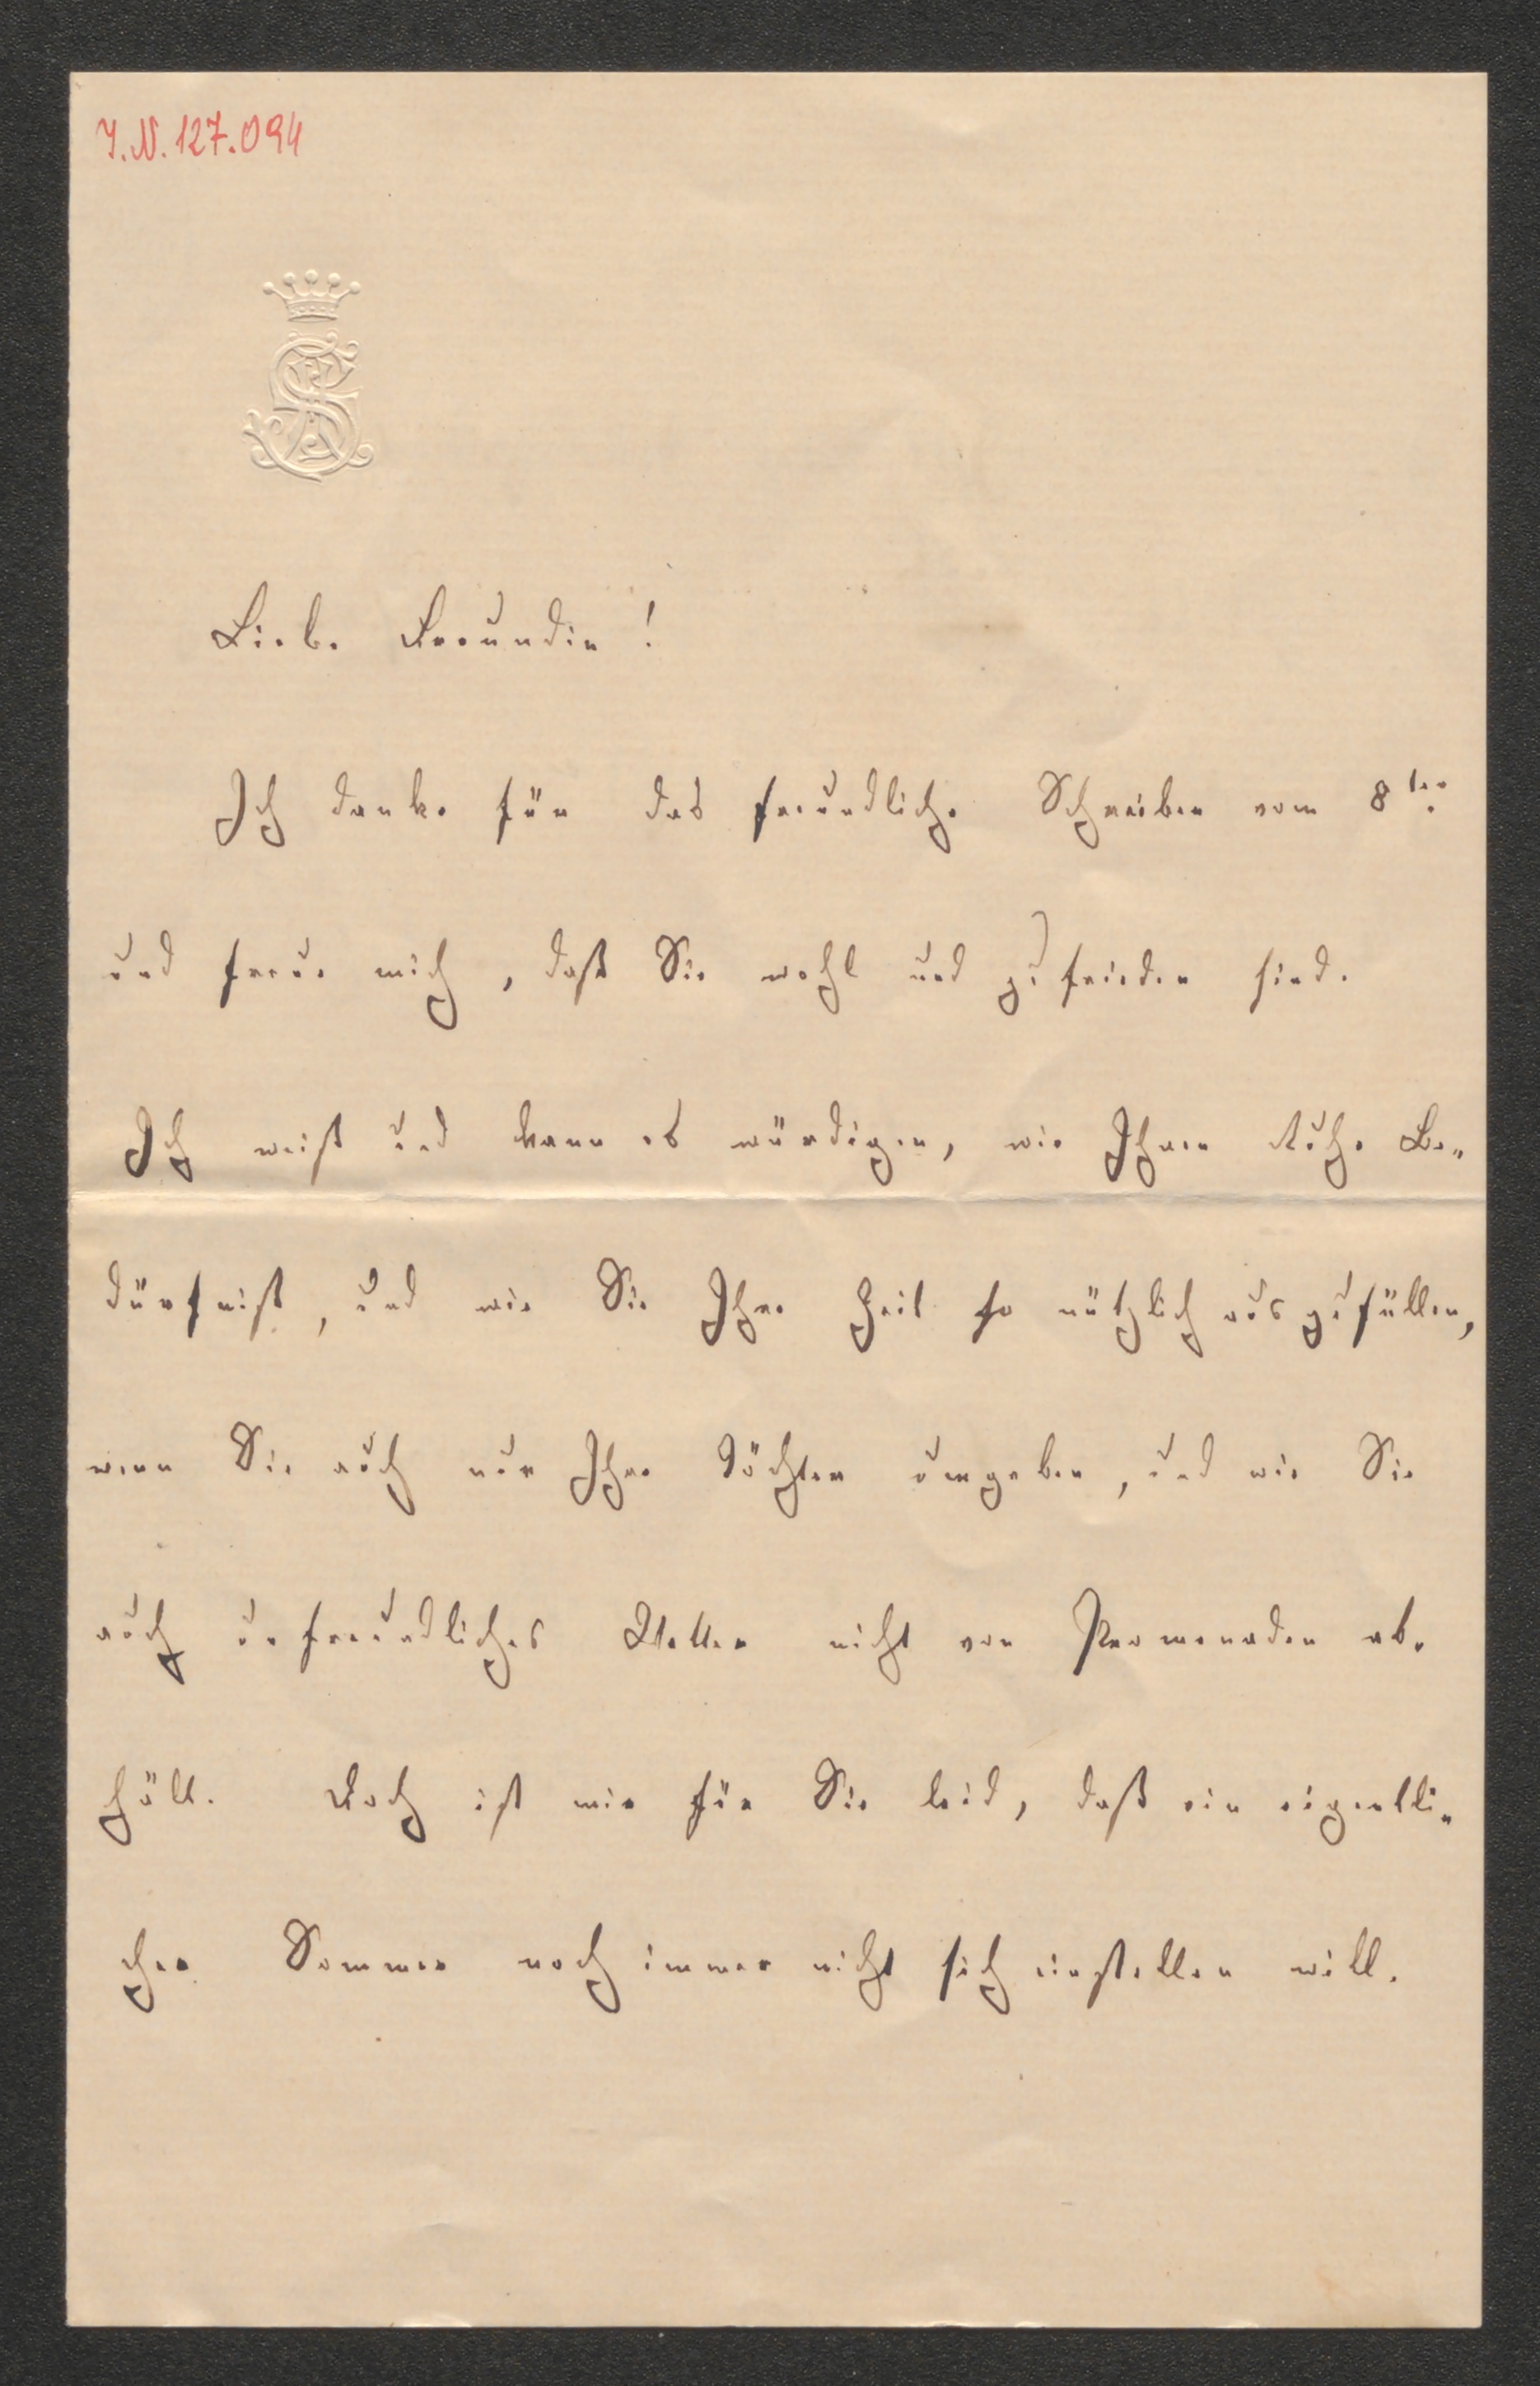 I.N. 127.094
Liebe Freundin!
Ich danke für das freundliche Schreiben vom 8ten
und freue mich, daß Sie wohl und zufrieden sind.
Ich weiß und kann es würdigen, wie Ihnen Ruhe Be„
dürfniß, und wie Sie Ihre Zeit so nützlich auszufüllen,
wenn Sie auch nur Ihre Töchter umgeben, und wie Sie
auch unfreundliches Wetter nicht von Promenaden ab„
hält. Doch ist mir für Sie leid, daß ein eigentli„
cher Sommer noch immer nicht sich einstellen will.